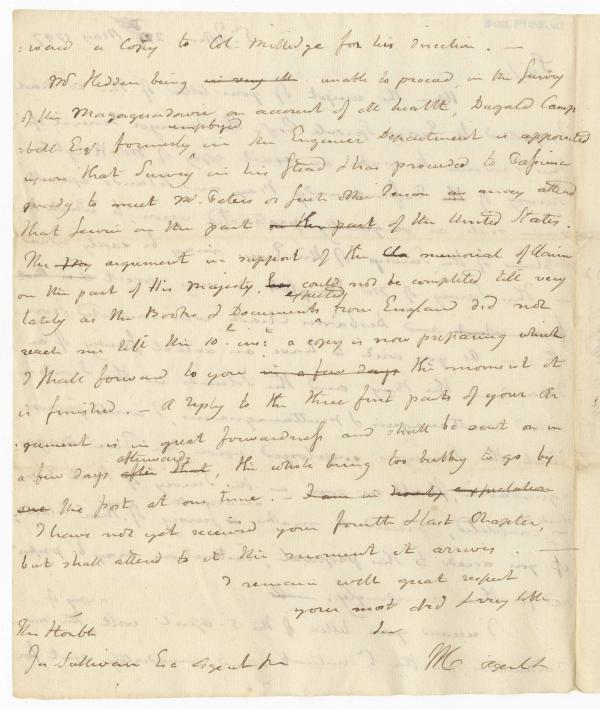 :ward a Copy to Col: Milledge for his direction. —
Mr. Hedden being in very ill unable to proceed in the Survey
of the Magaguadavic on account of ill health, Dugald Camp
:bell Esqr. formerly employed in the Engineer Department is appointed
upon that Survey in his Stead & has proceeded to Passima
quody to meet Mr. Peters or such other Person as may attend
that Service on the part on the part of the United States.
The my argument in support of the Cla memorial of Claim
on the part of His Majesty, has could not be completed till very
lately as the Books & Documents expected from England did not
reach me till the 10th. inst: a copy is now preparing which
I shall forward to you in a few days the moment it
is finished. — A reply to the three first parts of your Ar
:gument is in great forwardness and shall be sent on in
a few days after that afterwards, the whole being too bulky to go by
one the post at one time. — I am in hourly expectation
I have not yet received your fourth & last Chapter,
but shall attend to it the moment it arrives. —
I remain with great respect
your most obd & very hble
Ser
The Honble
Jas Sullivan Esq Agent &c
Agent &c